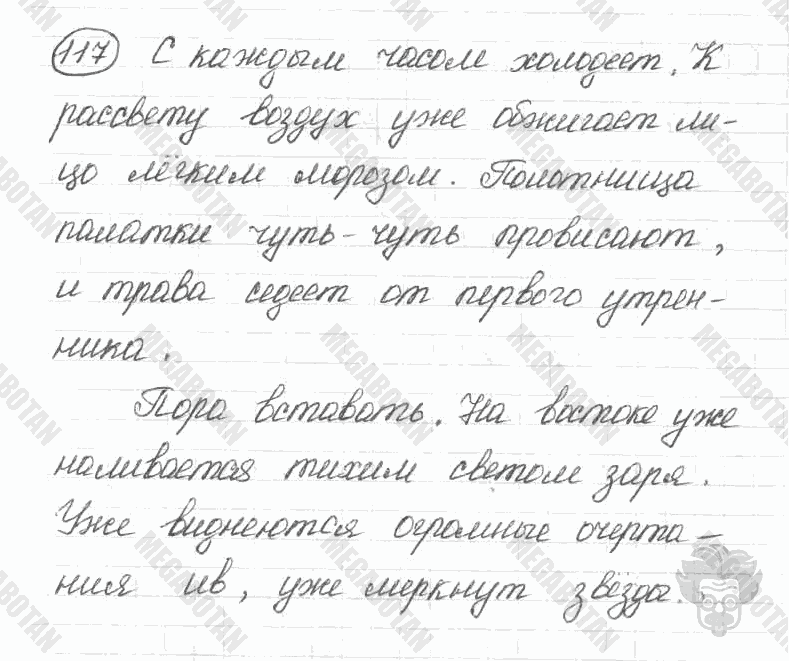 117 С каждым часом холодеет. К
рассвету воздух уже обжигает ли-
цо лёгким морозом. Полотнища
палатки чуть-чуть провисают,
и трава седеет от первого утрен-
ника.
Пора вставать. На востоке уже
наливается тихим светом заря.
Уже виднеются огромные очерта-
ния ив, уже меркнут звёзды.